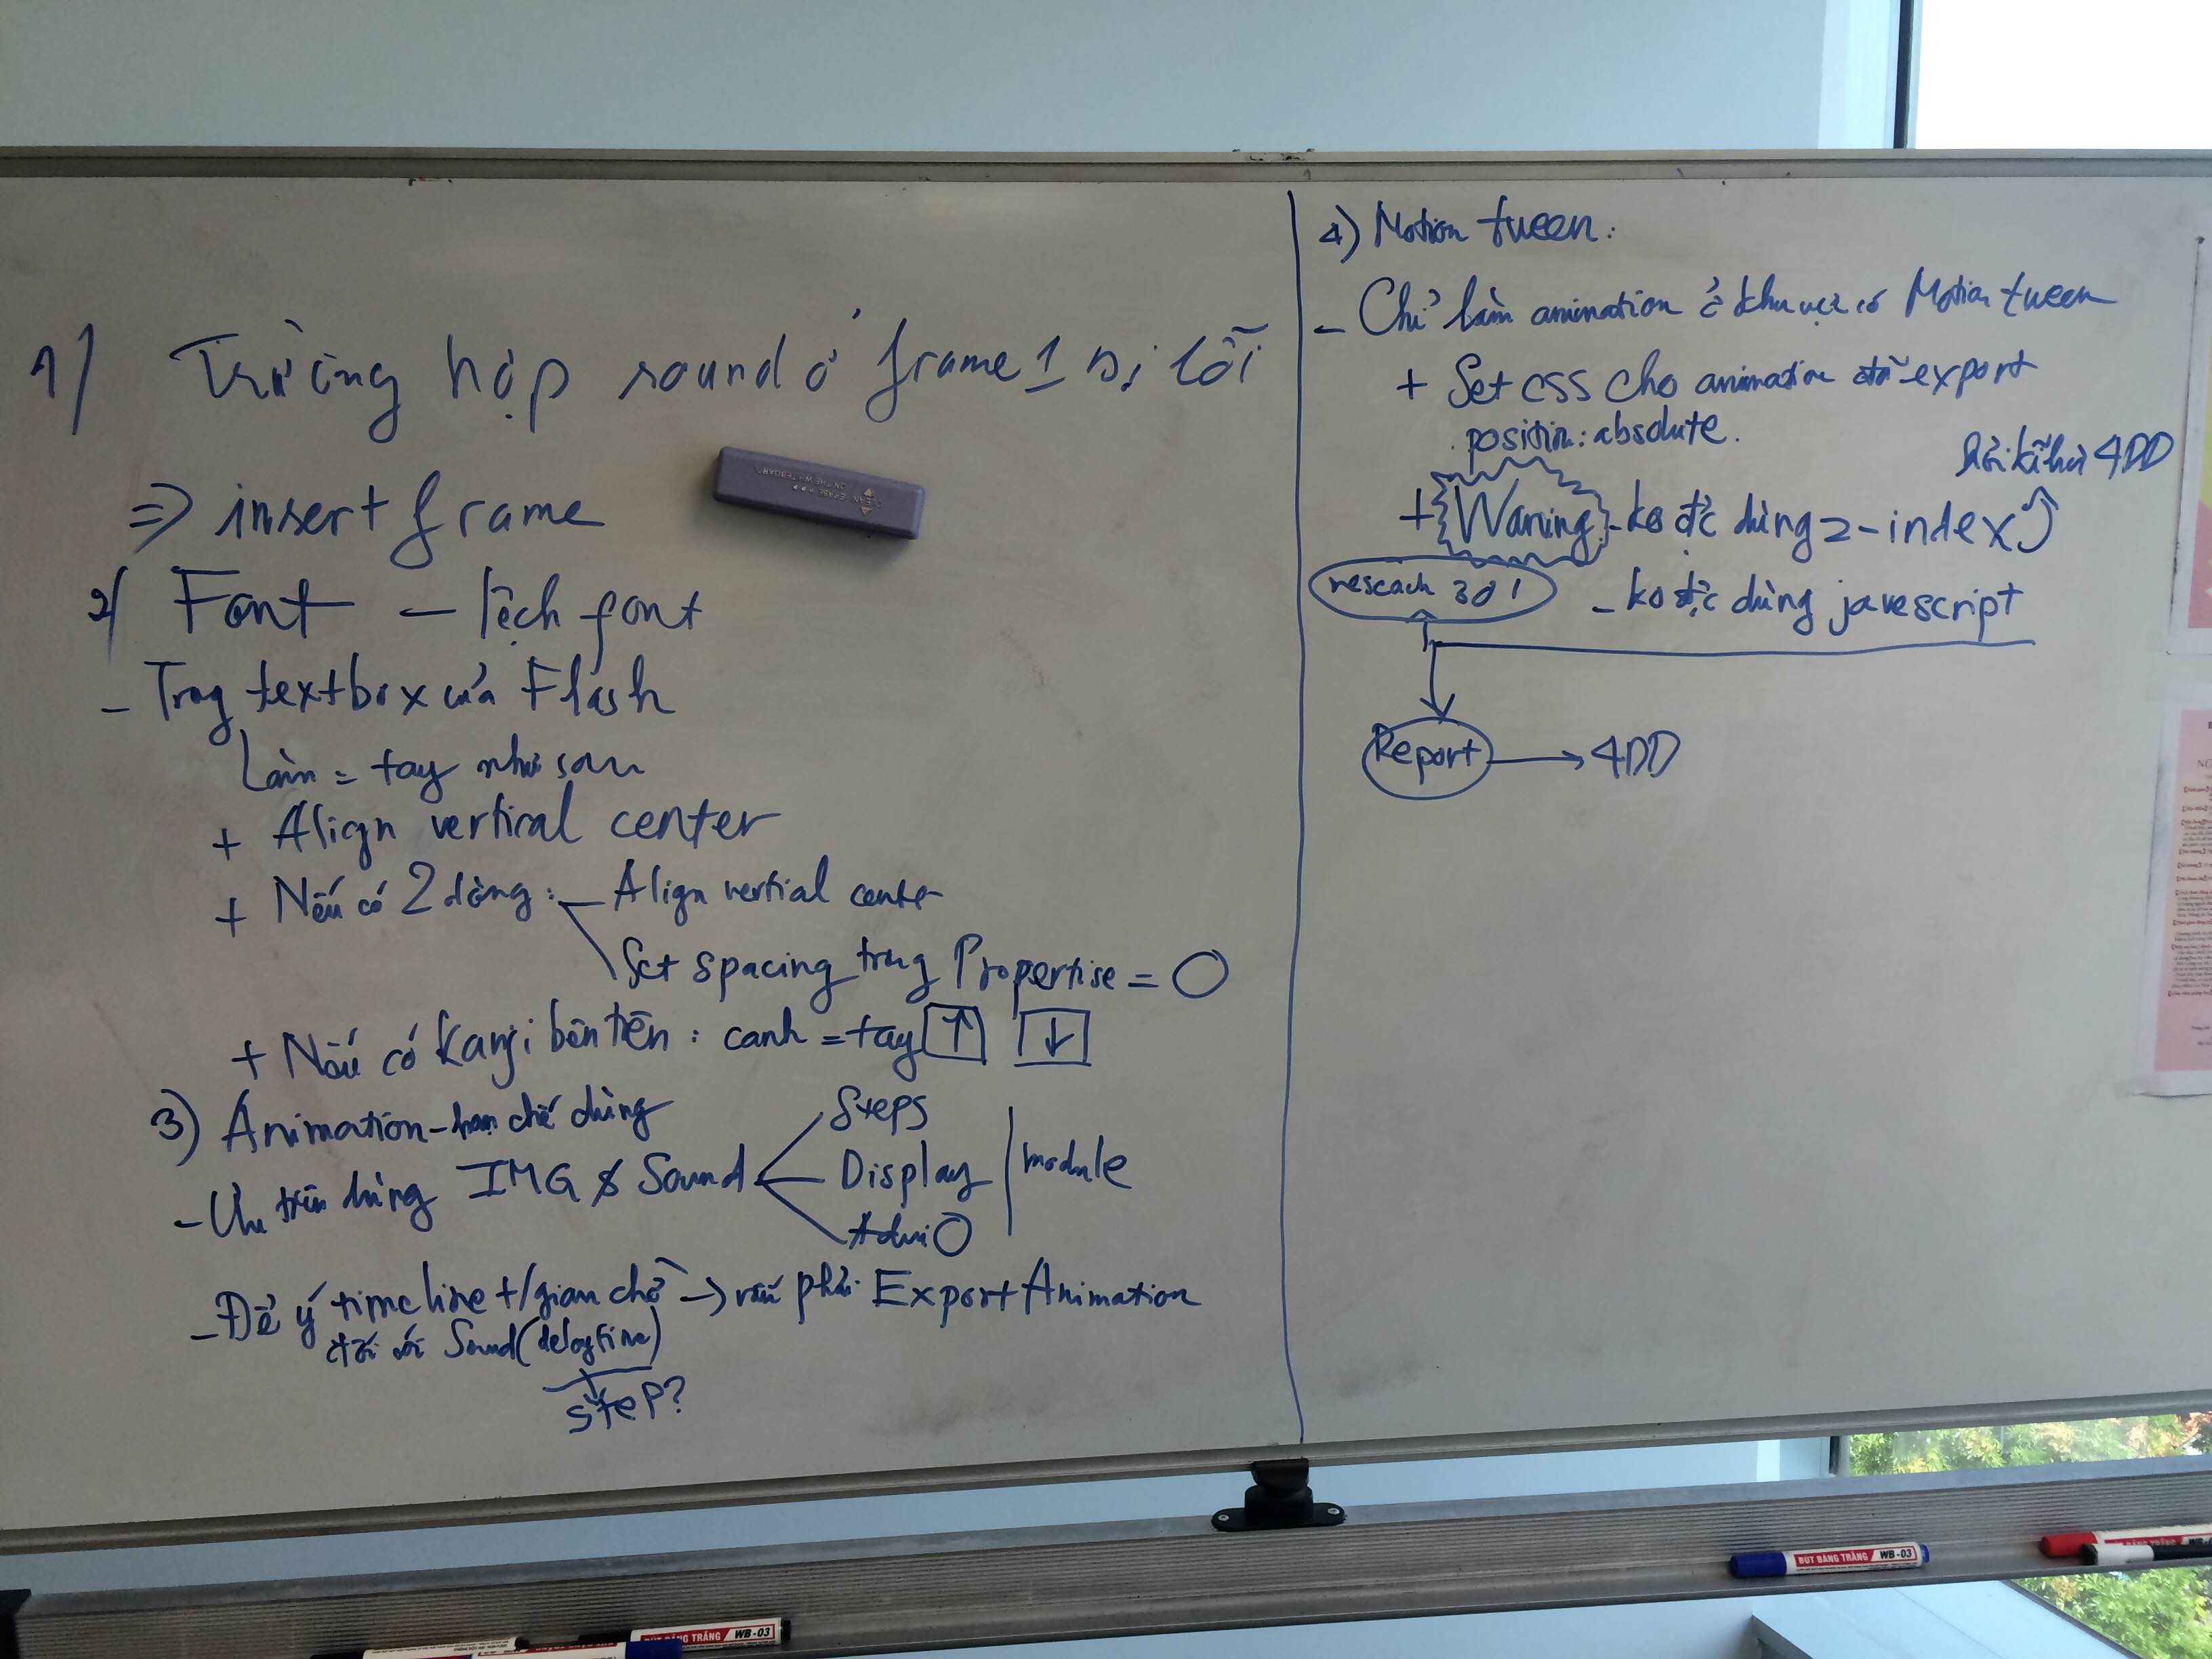 1) Trường hợp sound ở frame 1 bị lỗi
=> insert frame
2) Font - lệch font
- Trog textbox của Flash
Làm = tay như sau
+ Align vertical center
+ Nếu có 2 dòng: Align vertial center
Set spacing trng Propertise = O
+ Nếu có Kanji bên trên: canh = tay ↑ ↓
3) Animation - hạn chế dùng
- Ưu tiên dùng IMG & Sound
Steps
Display
module
- Để ý timeline t/gian chờ -> vẫn phải Export Animation
đối với Sound (delay time)
step?
4) Motion tween:
- Chỉ làm animation ở khu vực có Motion tween
+ Set css cho animation đã export
position: absolute.
4DD
+ Waning - ko đc dùng z-index
- ko đc dùng javescript
Report -> 4DD
BÚT BẢNG TRẮNG WB-03
BÚT BẢNG TRẮNG WB-03